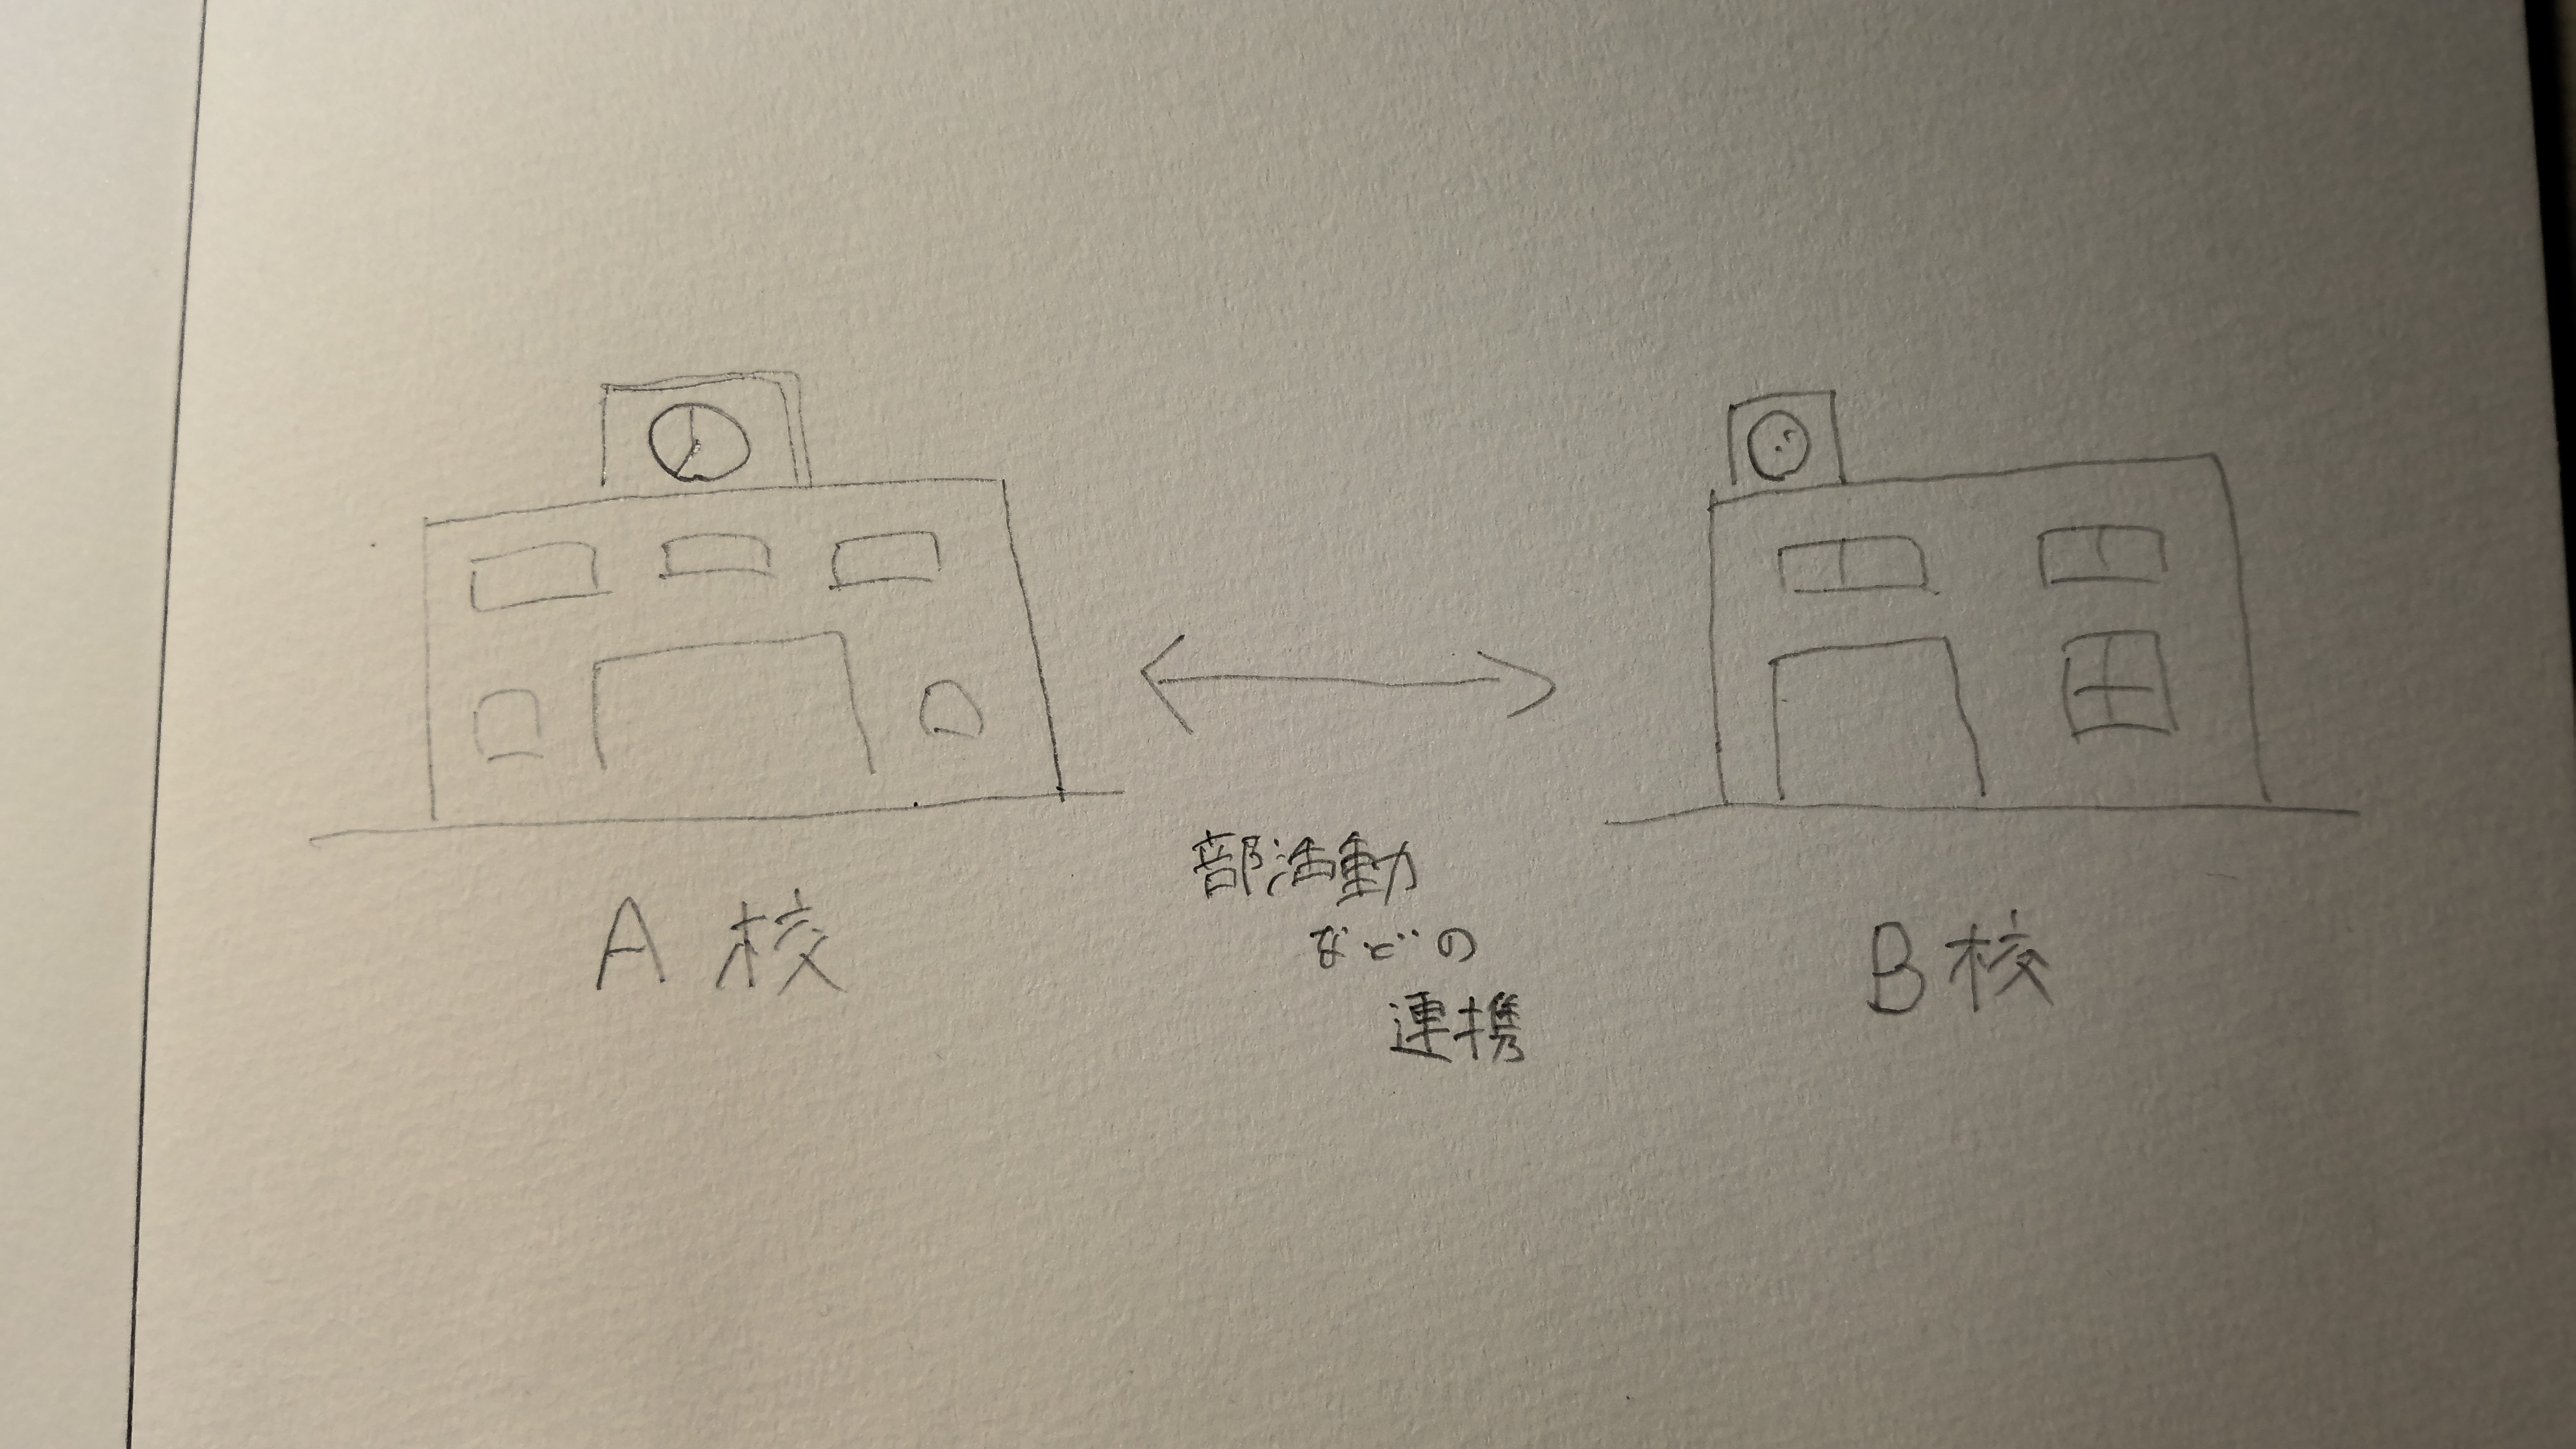 A校
部活動
などの
連携
B校